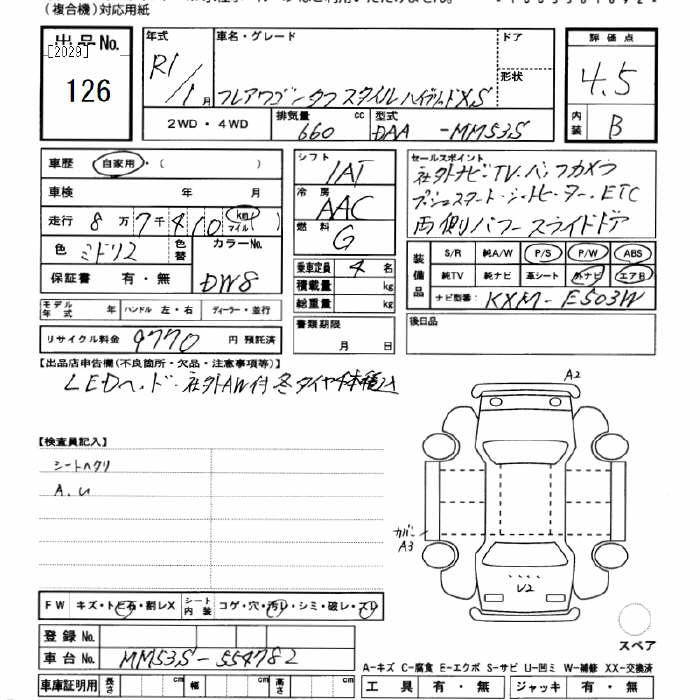 (複合機)対応用紙
出品No.
[2029]
126
年式
R1/1月
車名・グレード
フレアワゴン タフスタイル ハイブリッドXS
ドア
形状
評価点
4.5
内装
B
2WD・4WD
排気量
660 cc
型式
DAA-MM53S
車歴
自家用・( )
車検 年 月
走行 8万7千410 (km マイル)
色 ミドリ2
色替
カラーNo.
DW8
保証書 有・無
モデル年式 年
ハンドル 左・右
ディーラー・並行
リサイクル料金 9770 円 預託済
シフト
IAT
冷房
AAC
燃料
G
乗車定員 4 名
積載量 kg
総重量 kg
書類期限
月 日
セールスポイント
社外ナビ・TV・バックカメラ
プッシュスタート・シートヒーター・ETC
両側パワースライドドア
装備品
S/R 純A/W P/S P/W ABS
純TV 純ナビ 革シート 外ナビ エアB
ナビ型番: KXM-E503W
後日品
【出品店申告欄(不良箇所・欠品・注意事項等)】
LEDヘッド・社外AW付 冬タイヤ4本積込
【検査員記入】
シートヘタリ
A.U
A2
カバー
A3
U2
スペア
FW キズ・トビ石・割レX
シート内装 コゲ・穴・汚レ・シミ・破レ・スレ
登録No.
車台No. MM53S-554782
車庫証明用 長さ cm 幅 cm 高さ cm
A-キズ C-腐食 E-エクボ S-サビ U-凹ミ W-補修 XX-交換済
工具 有・無 ジャッキ 有・無